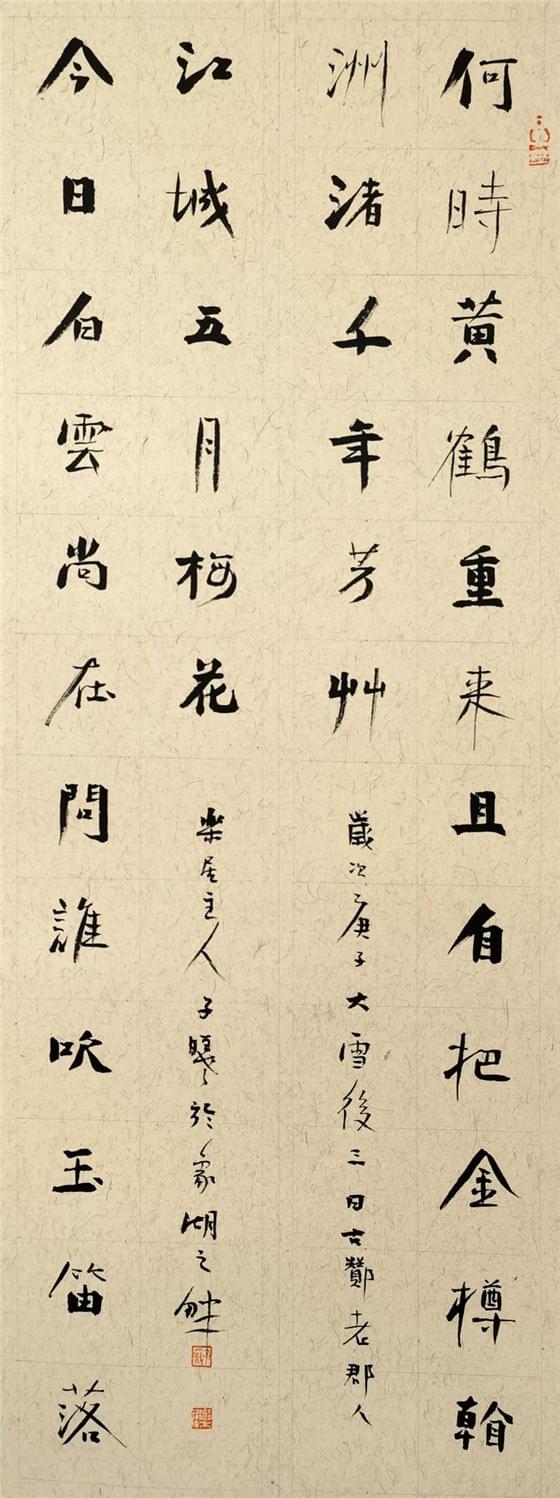 何時黄鶴重来且自把金樽看
洲渚千年芳艸
今日白雲尚在問誰吹玉笛落
江城五月梅花
歲次庚子大雪後三日古酇老郡人
樂居主人子於象湖之畔